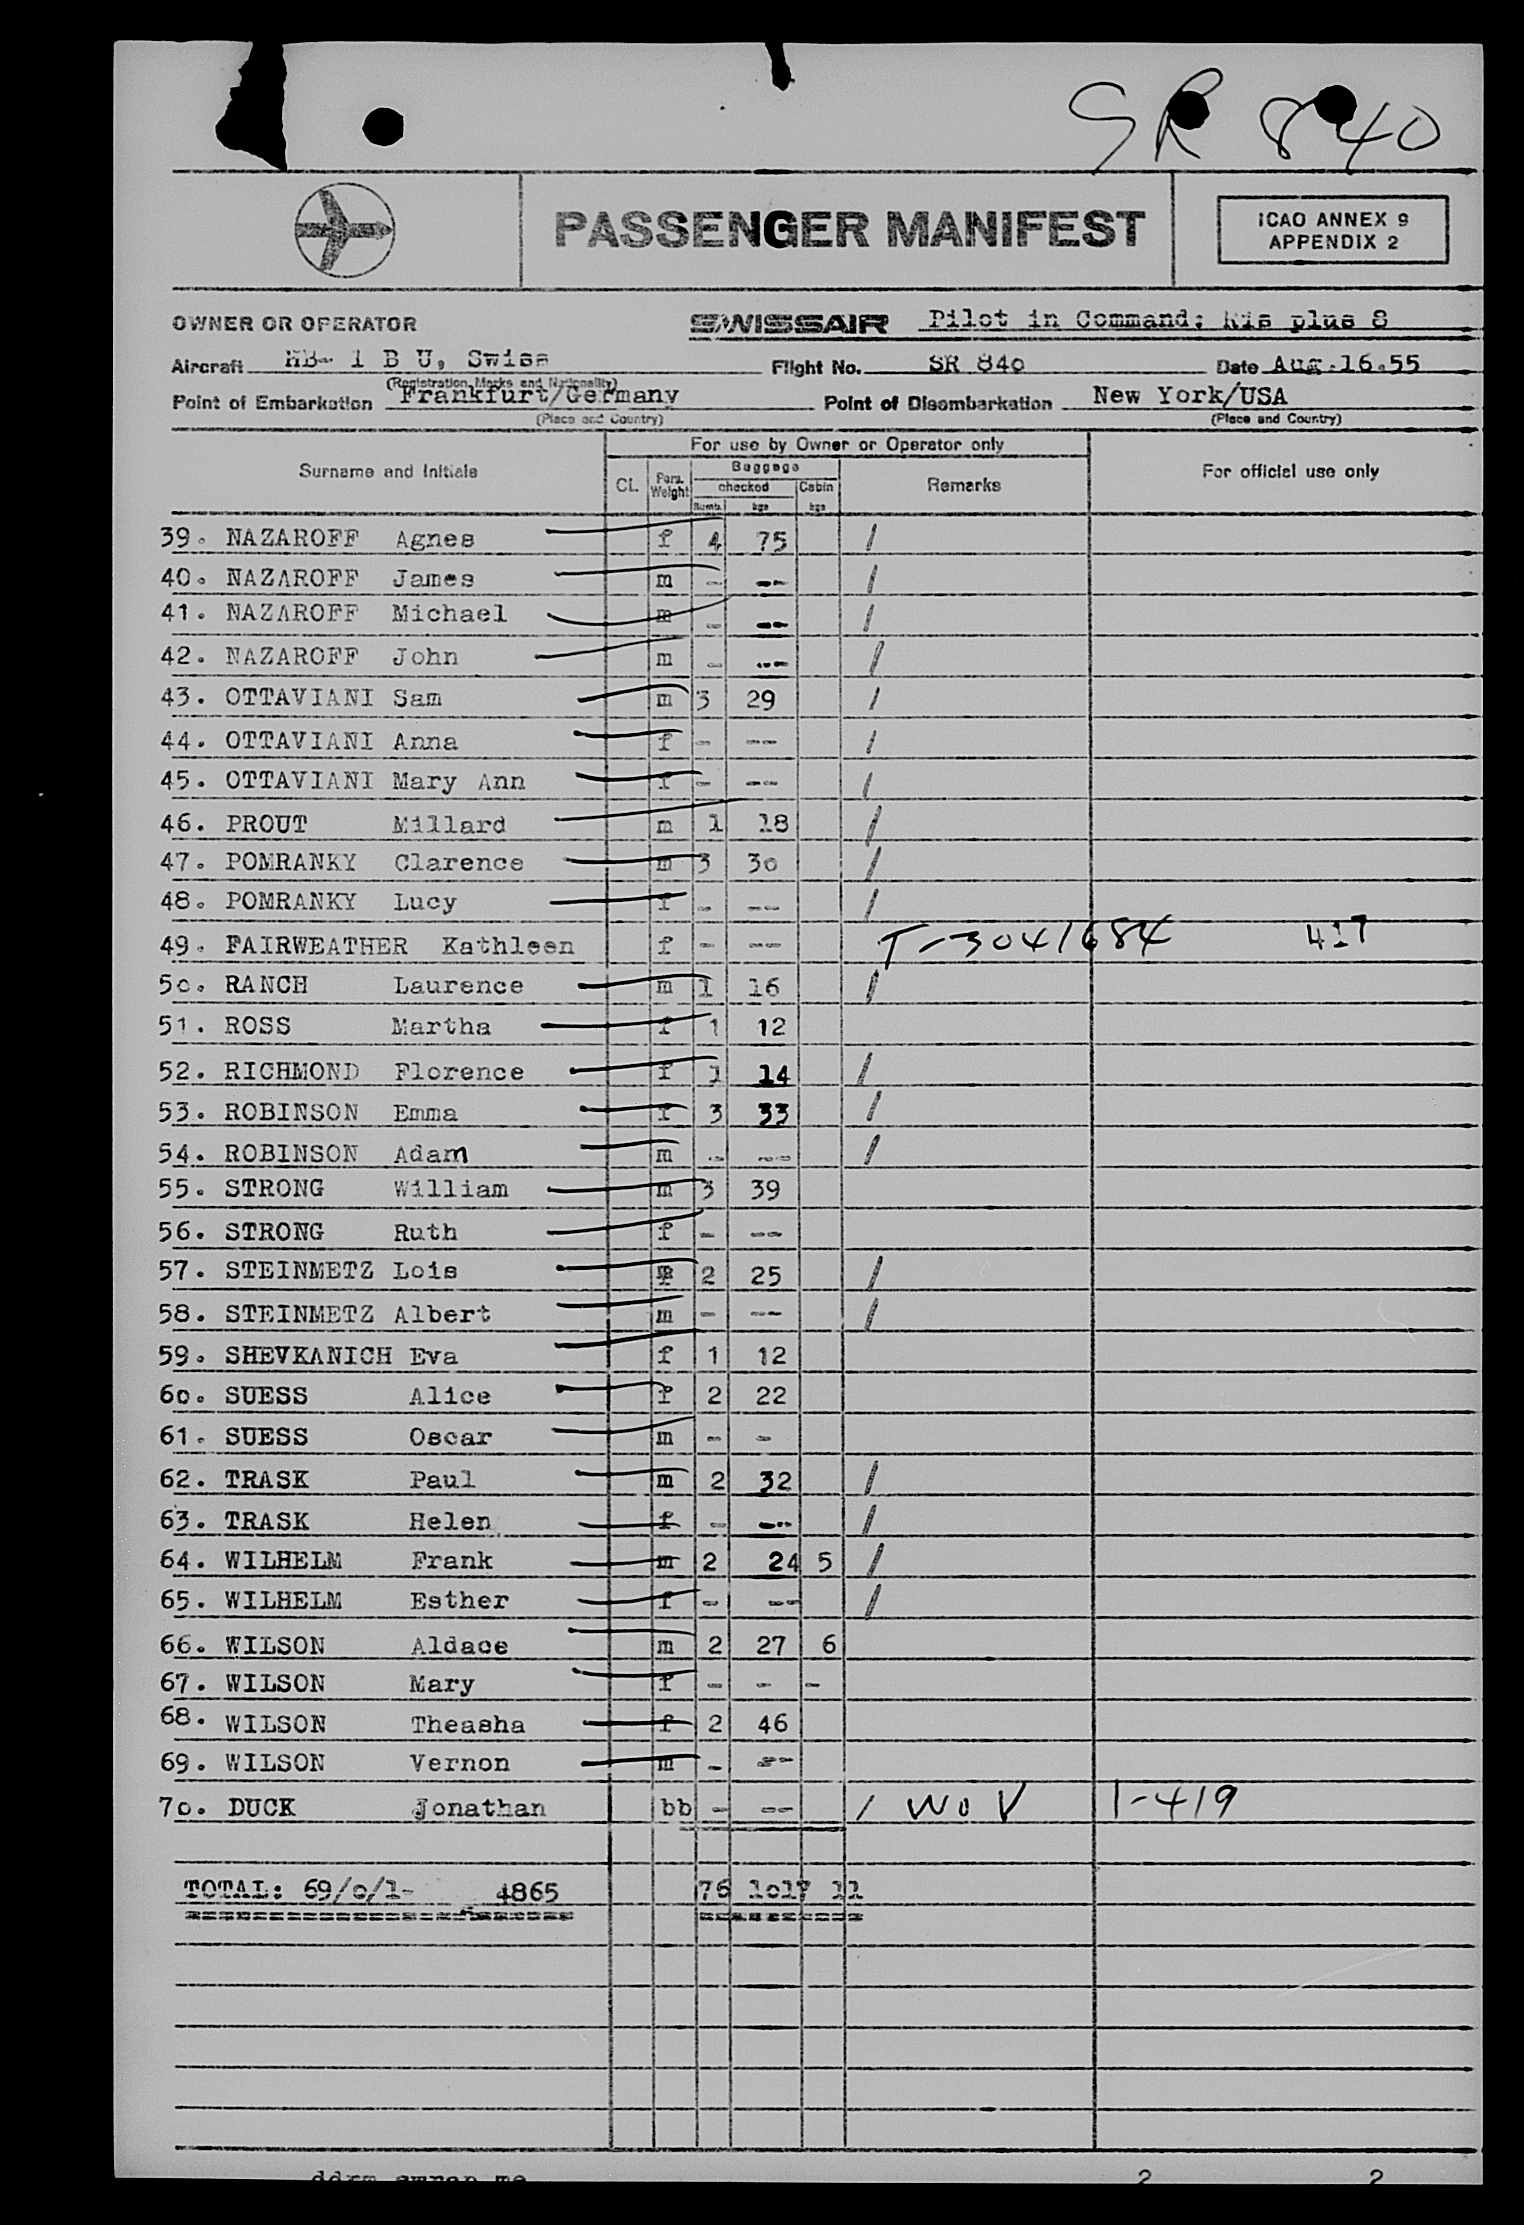 SR 840
PASSENGER MANIFEST
ICAO ANNEX 9
APPENDIX 2
OWNER OR OPERATOR SWISSAIR Pilot in Command: Ris plus 8
Aircraft HB- I B U, Swiss Flight No. SR 840 Date Aug.16.55
(Registration Marks and Nationality)
Point of Embarkation Frankfurt/Germany Point of Disembarkation New York/USA
(Place and Country) (Place and Country)
For use by Owner or Operator only
Surname and Initials CL. Pers. Weight Baggage checked Numb. kgs Cabin kgs Remarks For official use only
39. NAZAROFF Agnes f 4 75 /
40. NAZAROFF James m - -- /
41. NAZAROFF Michael m - -- /
42. NAZAROFF John m - -- /
43. OTTAVIANI Sam m 3 29 /
44. OTTAVIANI Anna f - -- /
45. OTTAVIANI Mary Ann f - -- /
46. PROUT Millard m 1 18 /
47. POMRANKY Clarence m 3 30 /
48. POMRANKY Lucy f - -- /
49. FAIRWEATHER Kathleen f - -- T-3041684 417
5o. RANCH Laurence m 1 16 /
51. ROSS Martha f 1 12
52. RICHMOND Florence f 1 14 /
53. ROBINSON Emma f 3 33 /
54. ROBINSON Adam m - -- /
55. STRONG William m 3 39
56. STRONG Ruth f - --
57. STEINMETZ Lois f 2 25 /
58. STEINMETZ Albert m - -- /
59. SHEVKANICH Eva f 1 12
6o. SUESS Alice f 2 22
61. SUESS Oscar m - -
62. TRASK Paul m 2 32 /
63. TRASK Helen f - -- /
64. WILHELM Frank m 2 24 5 /
65. WILHELM Esther f - -- /
66. WILSON Aldace m 2 27 6
67. WILSON Mary f - - -
68. WILSON Theasha f 2 46
69. WILSON Vernon m - --
7o. DUCK Jonathan bb - -- / WoV 1-419
TOTAL: 69/o/1- 4865 76 1o17 11